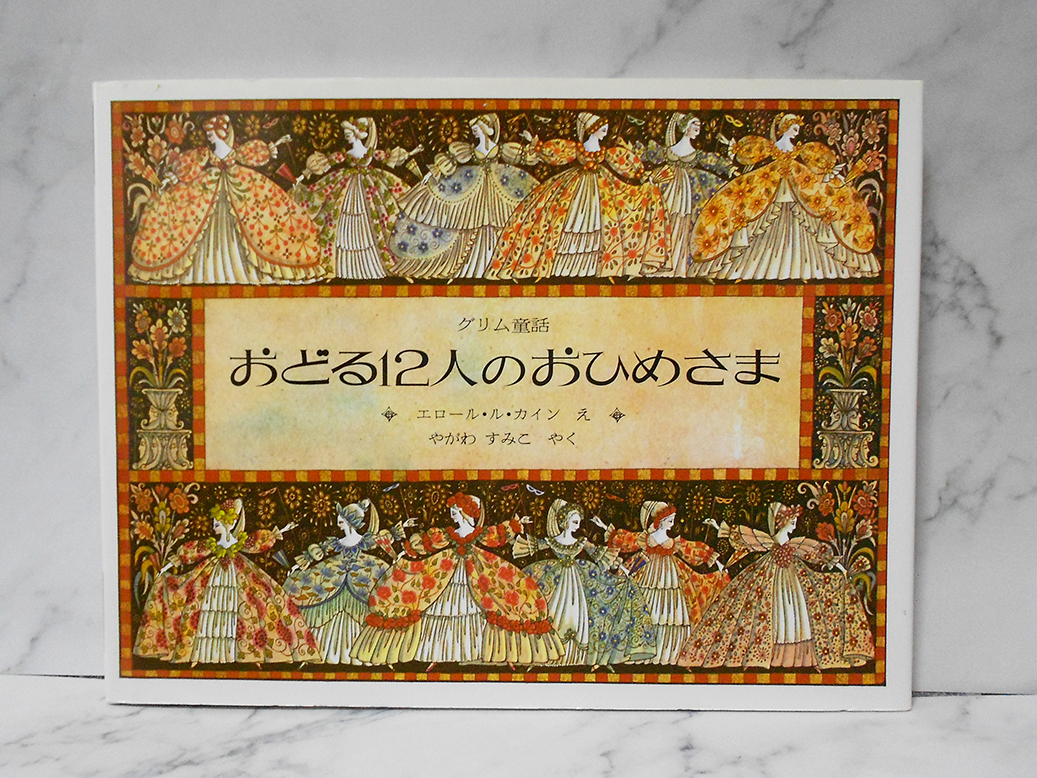 グリム童話
おどる12人のおひめさま
エロール・ル・カイン え
やがわ すみこ やく